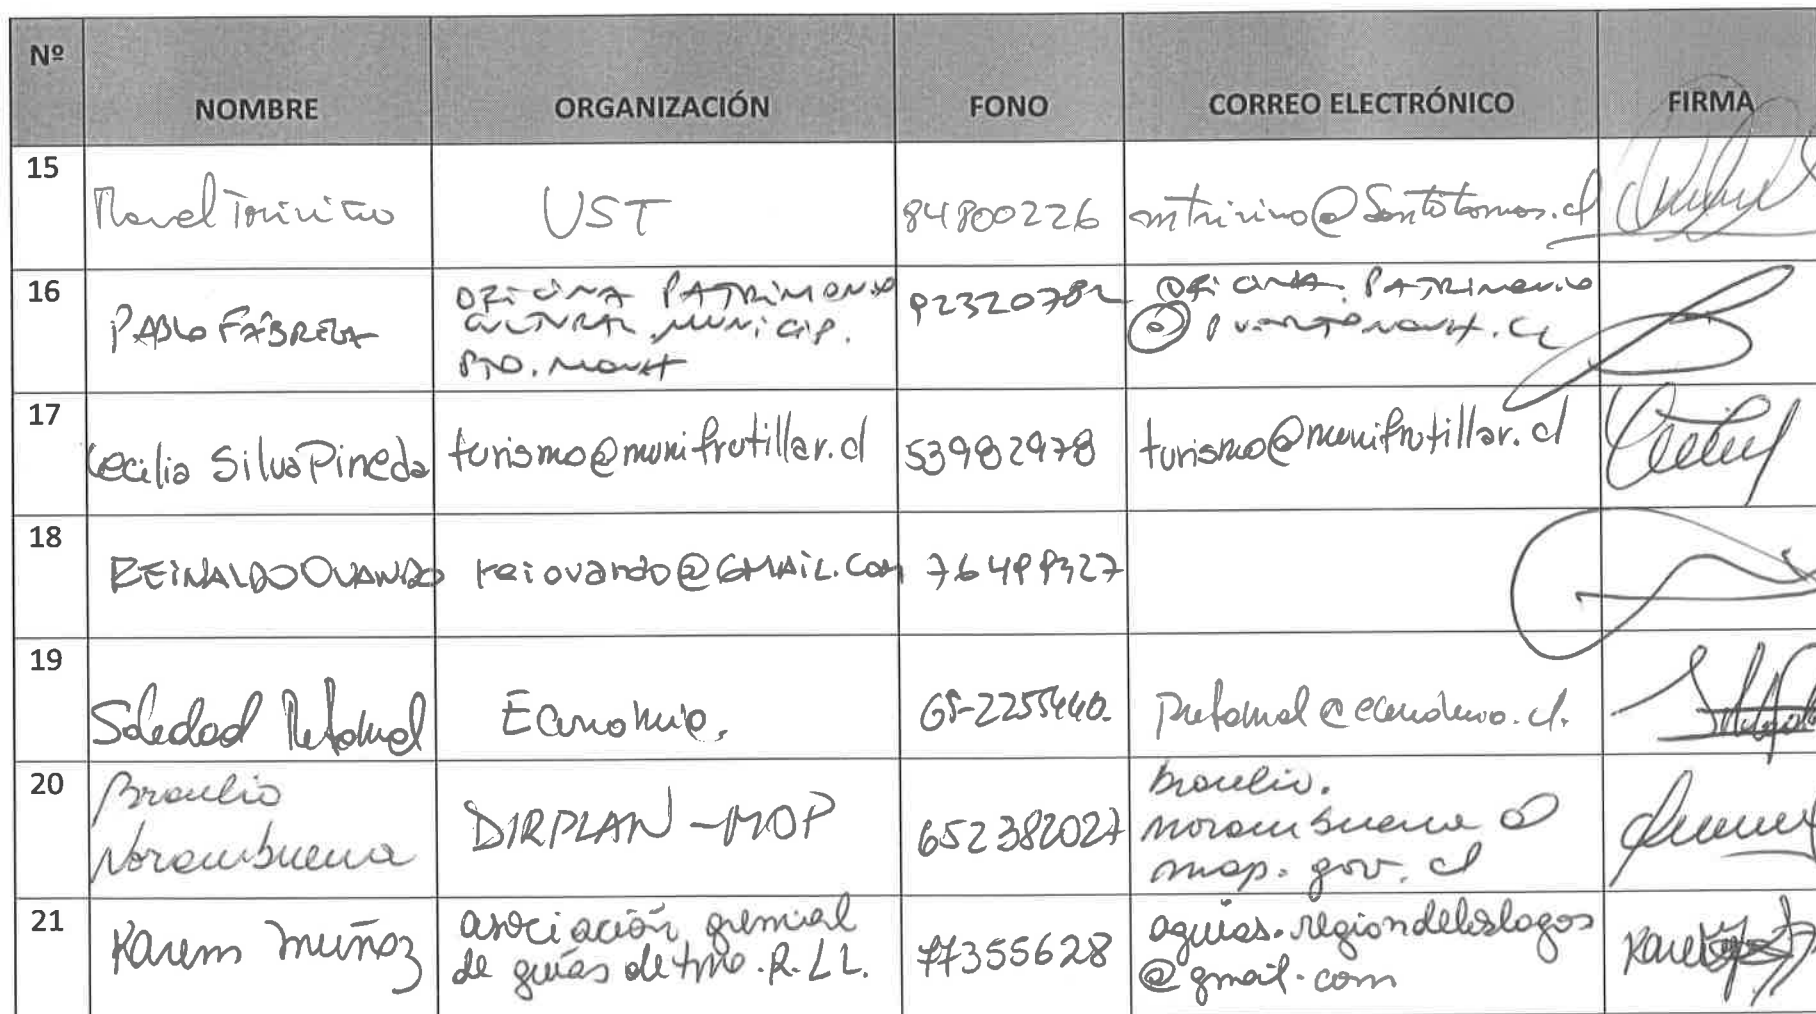 Nº NOMBRE ORGANIZACIÓN FONO CORREO ELECTRÓNICO FIRMA
15 Triviño UST 84800226 mtrivino@Santotomas.cl
16 PABLO FÁBREGA OFICINA PATRIMONIO
CULTURAL MUNICIP.
PTO. MONTT
92320782 OFICINA.PATRIMONIO
@PUERTOMONTT.CL
17 Cecilia Silva Pineda turismo@munifrutillar.cl 53982978 turismo@munifrutillar.cl
18 REINALDO OVANDO reiovando@GMAIL.COM
19 Soledad Retamal Economia. 65-2255440.
20 Braulio
Norambuena
DIRPLAN-MOP 652382027 braulio.
norambuena @
mop.gov.cl
21 Karem muñoz asociación gremial
de guías de tmo.R.LL.
77355628 aguias.regiondeloslagos
@gmail.com